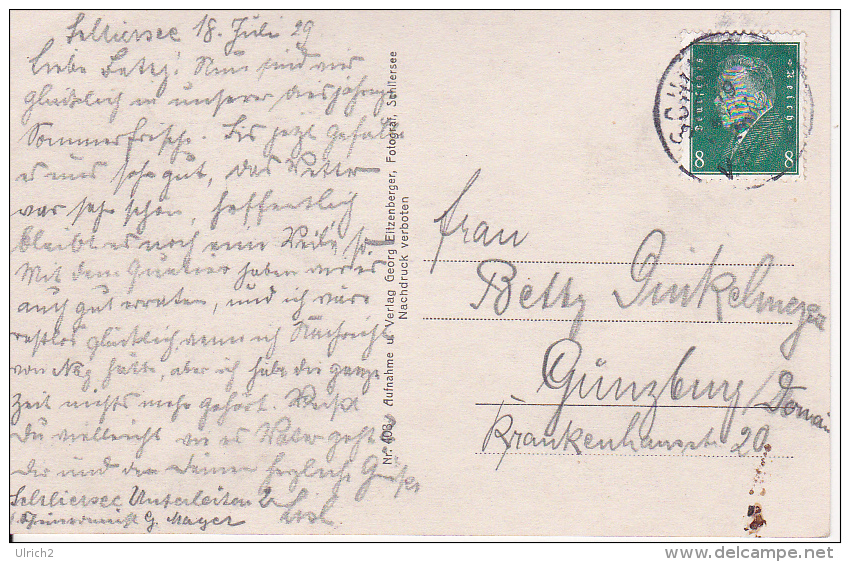 Schliersee 18. Juli 29
Liebe Betty! Nun sind wir
glücklich in unserer diesjährigen
Sommerfrische. Bis jetzt gefällt
es uns sehr gut, das Wetter
war sehr schön, hoffentlich
bleibt es noch eine Weile so.
Mit dem Quartier haben wir es
auch gut erraten, und ich wäre
restlos glücklich, wenn ich Nachricht
von hätte, aber ich habe die ganze
Zeit nichts mehr gehört. Weißt
Du vielleicht wie es Vater geht?
Dir und den Deinen herzliche Grüße
Schliersee Unterleiten 2
G. Mayer
Nr. 408 Aufnahme u. Verlag Georg Eitzenberger, Fotograf, Schliersee
Nachdruck verboten
Deutsches Reich
8 8
Frau
Betty Ginkelmeyer
Günzburg / Donau
Krankenhausstr 20
Ulrich2
www.delcampe.net